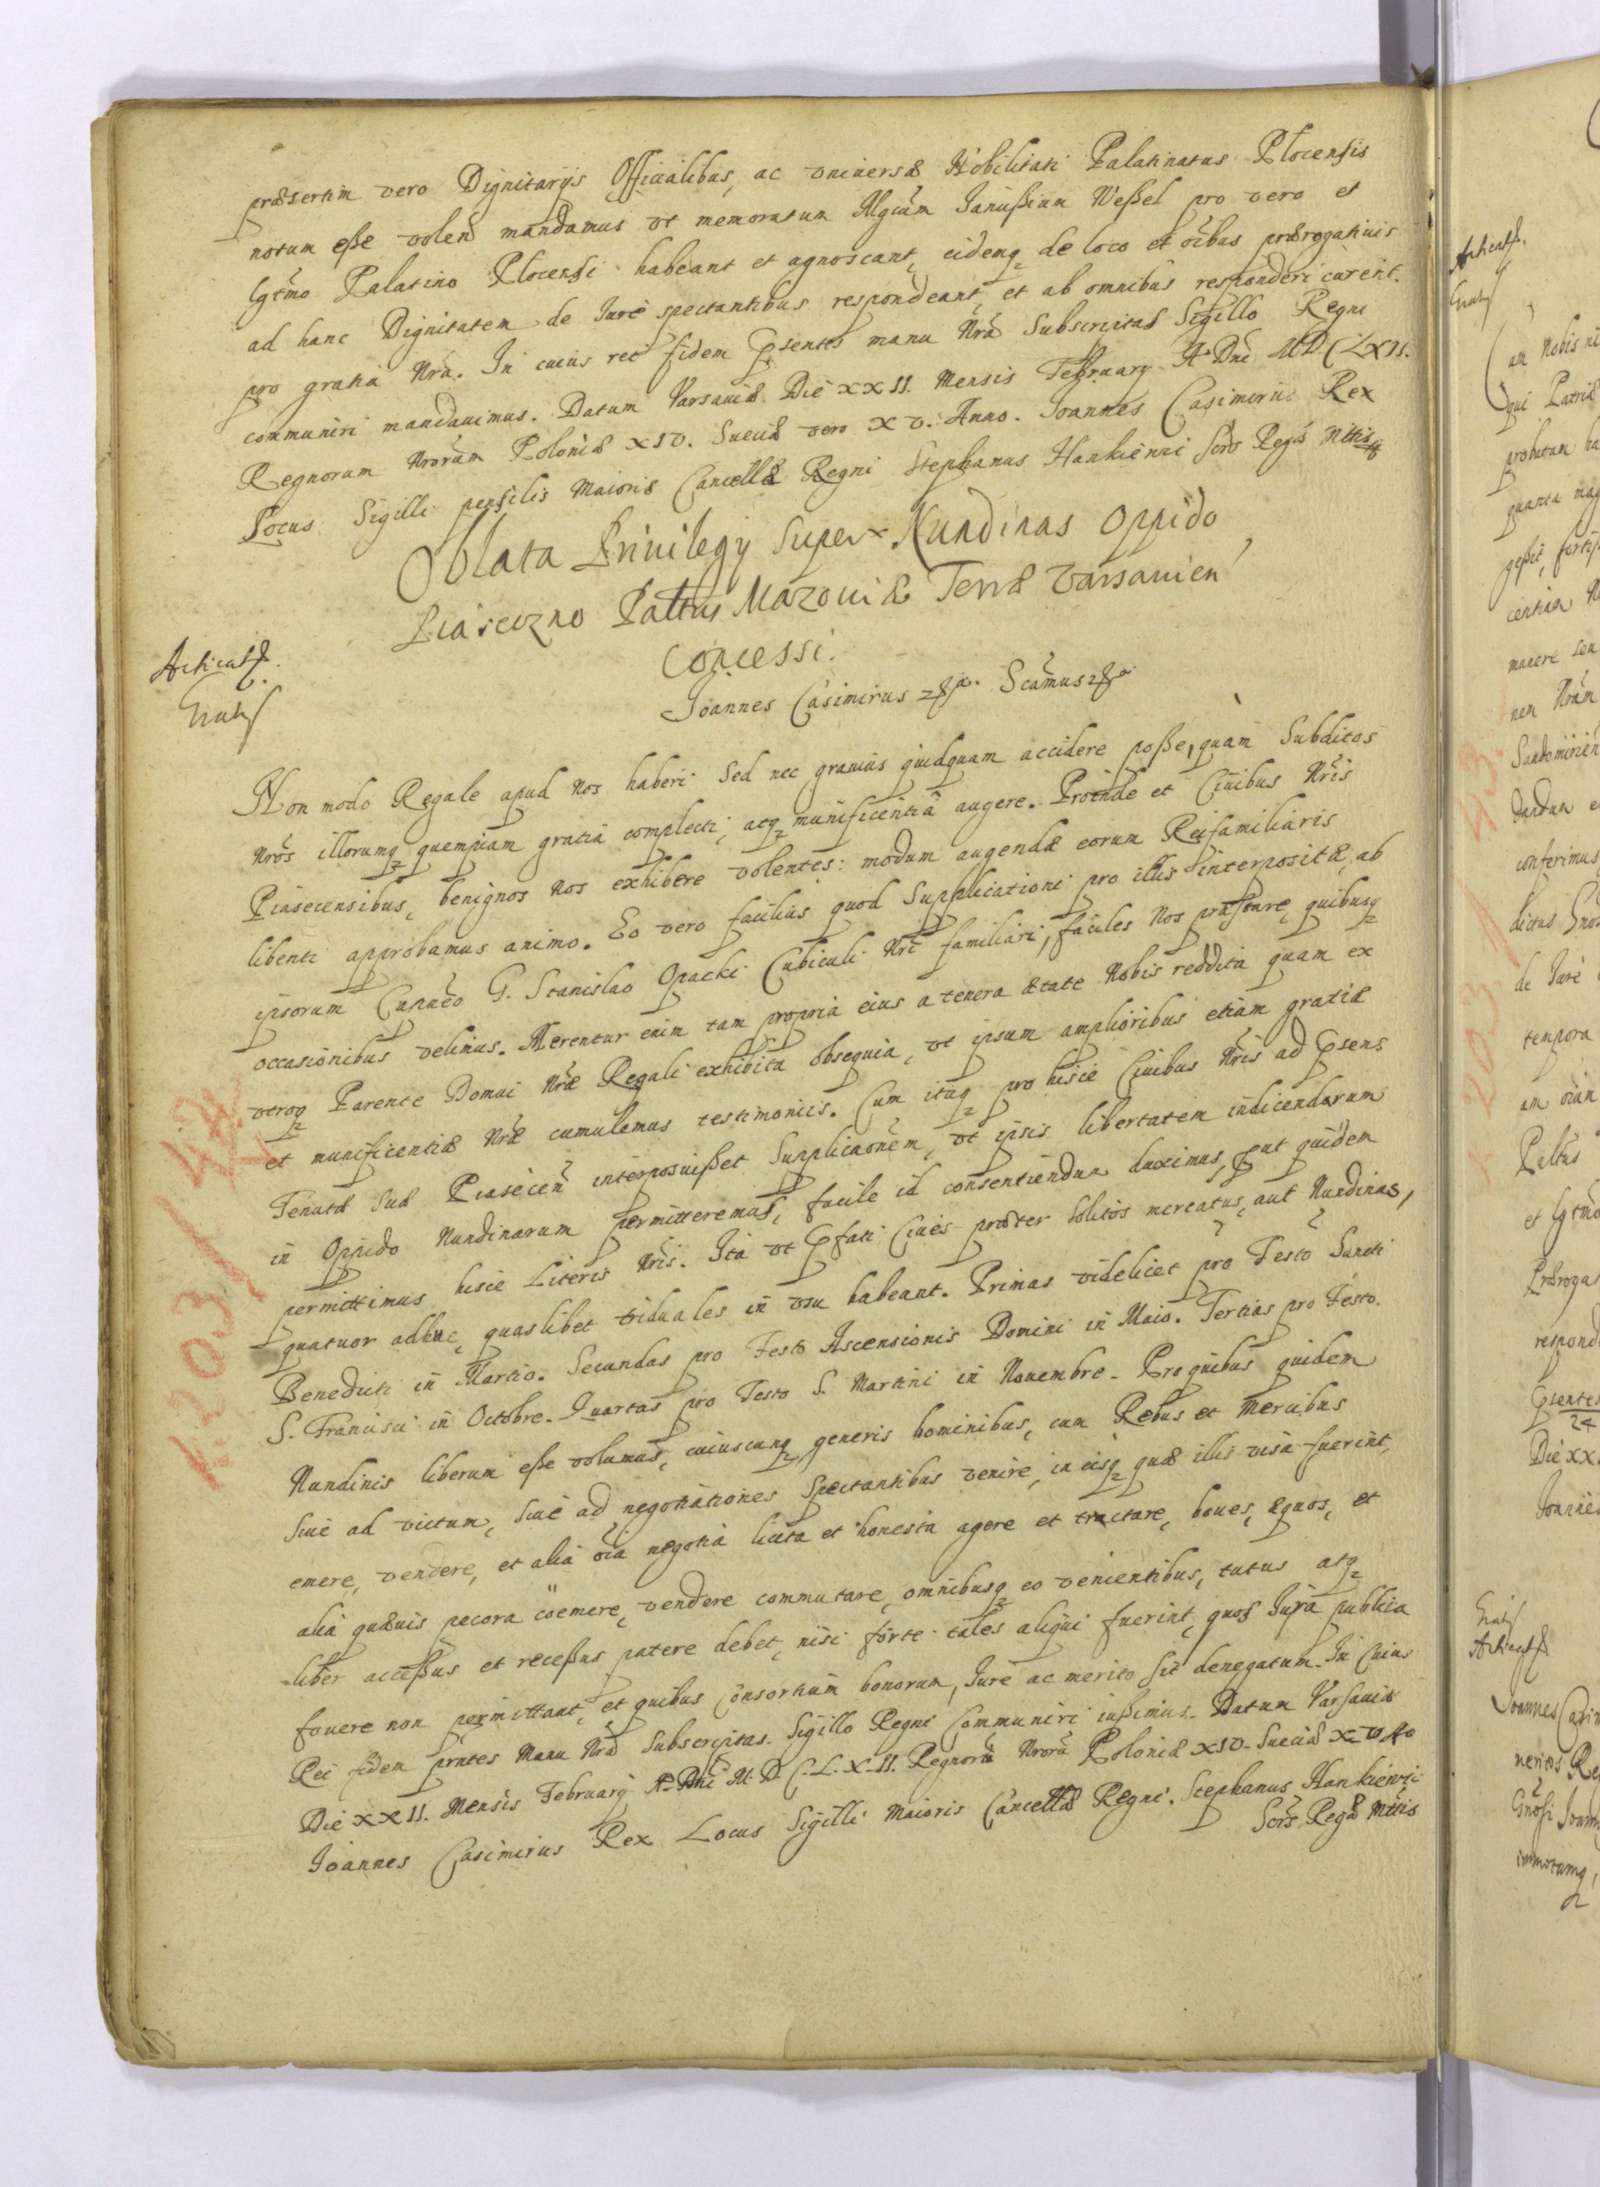 præsertim vero Dignitarijs Officialibus, ac vniversæ Nobilitati Palatinatus Plocensis
notum eße volen̄ mandamus vt memoratum Mgcum Janußium Weßel pro vero et
lgtmo Palatino Plocensi habeant et agnoscant, eidemq de loco et oibus prærogativis
ad hanc Dignitatem de Jure spectantibus respondeant, et ab omnibus responderi curent.
pro gratia Nra. In cuius rei fidem Psentes manu Nra Subscriptas Sigillo Regni
communiri mandavimus. Datum Varsaviæ Die XXII. Mensis February A Dni MDCLXII.
Regnorum Nrorum Poloniæ XIV. Sueciæ vero XV. Anno. Joannes Casimirus Rex
Locus Sigilli pensilis Maioris Cancellæ Regni Stephanus Hankiewi Scrs Regis Mttis
Oblata Privilegy Super Nundinas Oppido
Piaseczno Palttus Mazoviæ Terræ Varsavien
Concessi.
Articulf.
Grats
Joannes Casimirus Scamus
Non modo Regale apud Nos haberi Sed nec gravius quidquam accidere poße, quam Subditos
Nros illorumq quempiam gratia complecti, acq munificentiâ augere. Proinde et Civibus Nris
Piasecensibus, benignos Nos exhibere volentes: modum augendæ eorum Reifamiliaris
libenti approbamus animo. Eo vero facilius quod Supplicationi pro illis interpositæ, ab
ipsorum Capneo G. Stanislao Opacki Cubiculi Nri familiari, faciles Nos præstare, quibusq
occasionibus velimus. Merentur enim tam propria eius a tenera ætate Nobis reddita quam ex
vtroq Parente Domui Nræ Regali exhibita obsequia, vt ipsum amplioribus etiam gratiæ
et munificentiæ Nræ cumulemus testimoniis. Cum itaq pro hisce Civibus Nris ad Psens
Tenutæ Suæ Piasecen interposuißet Supplicaonem, vt ipsis libertatem indicendarum
in Oppido Nundinarum permitteremus, facile id consentiendum duximus, Put quidem
permittimus hisce Literis Nris. Ita vt Pfati Cives præter Solitos mercatus, aut Nundinas,
quatuor adhuc, quaslibet triduales in vsu habeant. Primas videlicet pro Festo Sancti
Benedicti in Martio. Secundas pro Festo Ascensionis Domini in Maio. Tertias pro Festo.
S. Francisci in Octobre. Quartas pro Festo S. Martini in Novembre. Pro quibus quidem
Nundinis liberum eße volumus, cuiuscunq generis hominibus, cum Rebus et Mercibus
sive ad victum, sive ad negotiationes Spectantibus venire, in eisq quæ illis visa fuerint,
emere, vendere, et alia oia negotia licita et honesta agere et tractare, boves, equos, et
alia quævis pecora cöemere, vendere commutare, omnibusq eo venientibus, tutus atq
liber acceßus et receßus patere debet, nisi forte tales aliqui fuerint, quos Jura publica
fovere non permittant, et quibus Consortium bonorum, Jure ac merito sit denegatum. In Cuius
Rei fidem prntes Manu Nra Subscriptas. Sigillo Regni Communiri iußimus. Datum Varsaviæ
Die XXII. Mensis February A. Dni M. D. C. L. X. II. Regnorū Nrorū Poloniæ XIV. Sueciæ XV Ao
Joannes Casimirus Rex Locus Sigilli Maioris Cancellæ Regni. Stephanus Hankiewi
Scrs Regæ Mttis
1203/42
Articulf.
Grats
an Nobis ni
qui Patriæ
probatum ha
quanta mag
geßit, fortip
centia N
manere
nem Nram
Sandomirien
dandum e
conferimus
dictus Gnos
de Jure
tempora
am oium
Palttus
et lgtmo
Præroga
respond
Psentes
24
Die XX
Joannes
Grats
Articulf.
Joannes Casim
Gnosi Joann